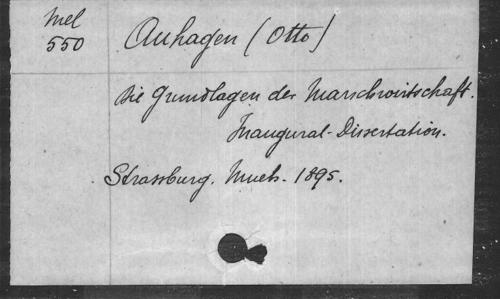 Mel
550
Auhagen (Otto)
Die Grundlagen der Marschwirtschaft.
Inaugural-Dissertation.
Strassburg. Mueh. 1895.